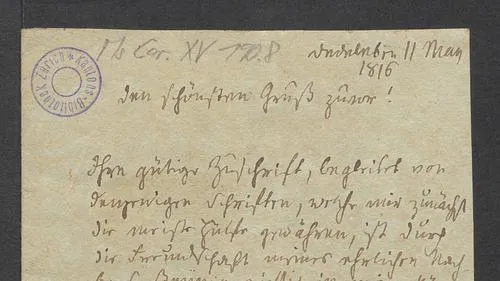 Ms Car. XV 170.8
Dedeleben 11 May
1816
Kantons-Bibliothek Zürich
den schönsten Gruß zuvor!
Ihre gütige Zuschrift, begleitet von
denjenigen Schriften, welche mir zunächst
die meiste Hülfe gewähren, ist durch
die Freundschaft meines ehrlichen Nach-